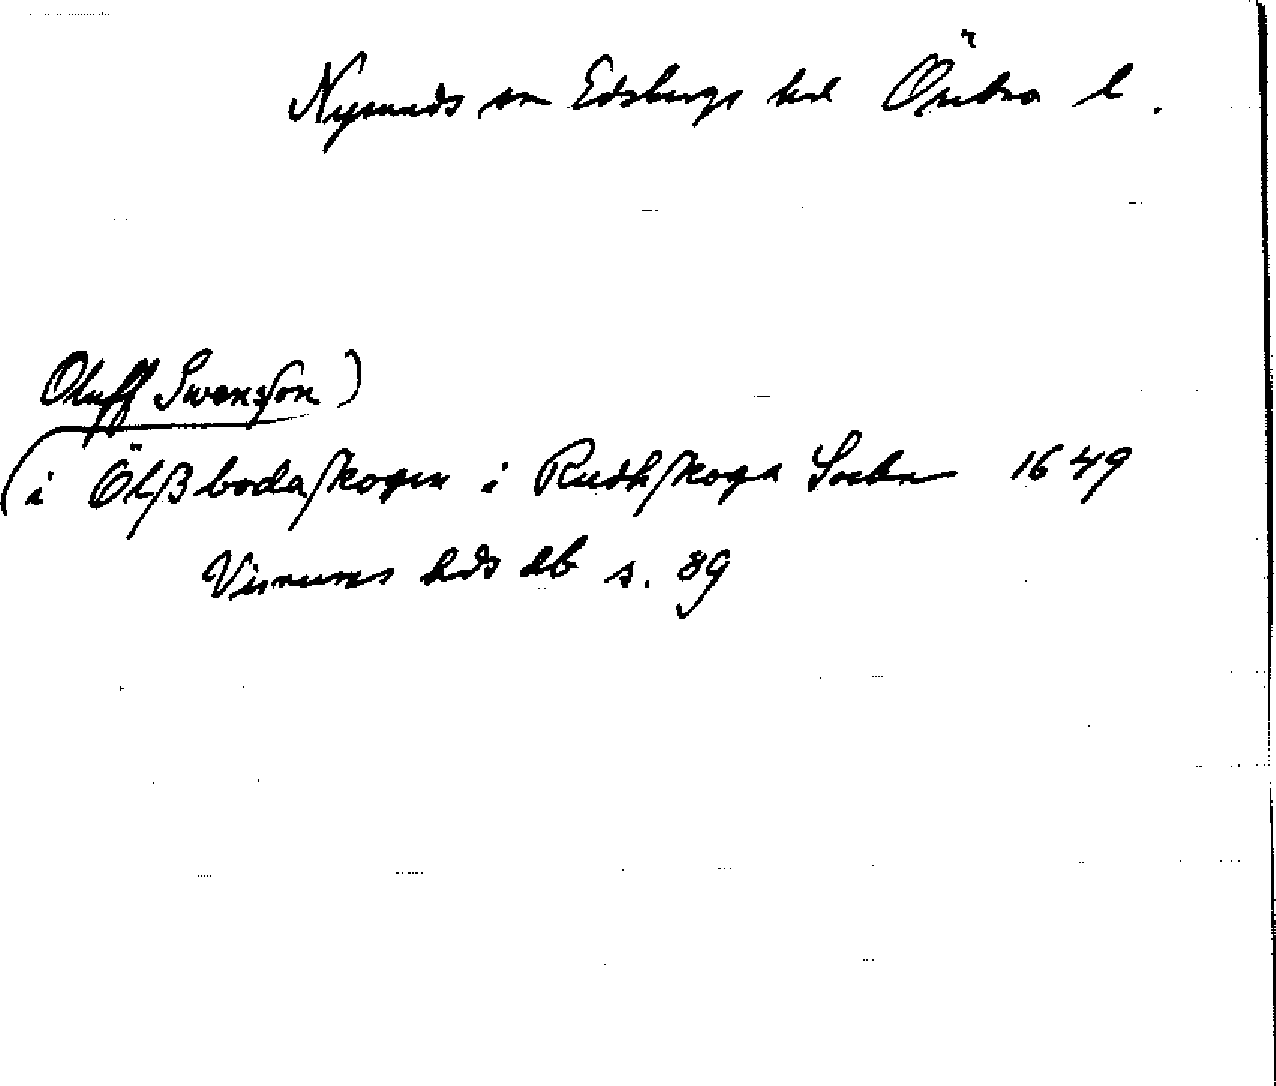 Nysunds sn Edsbergs hd Örebro l.
Oluff Swensson)
(i Ölßbodaskogen i Rudhskoga Sockn 1649
Visnums hds db s. 89